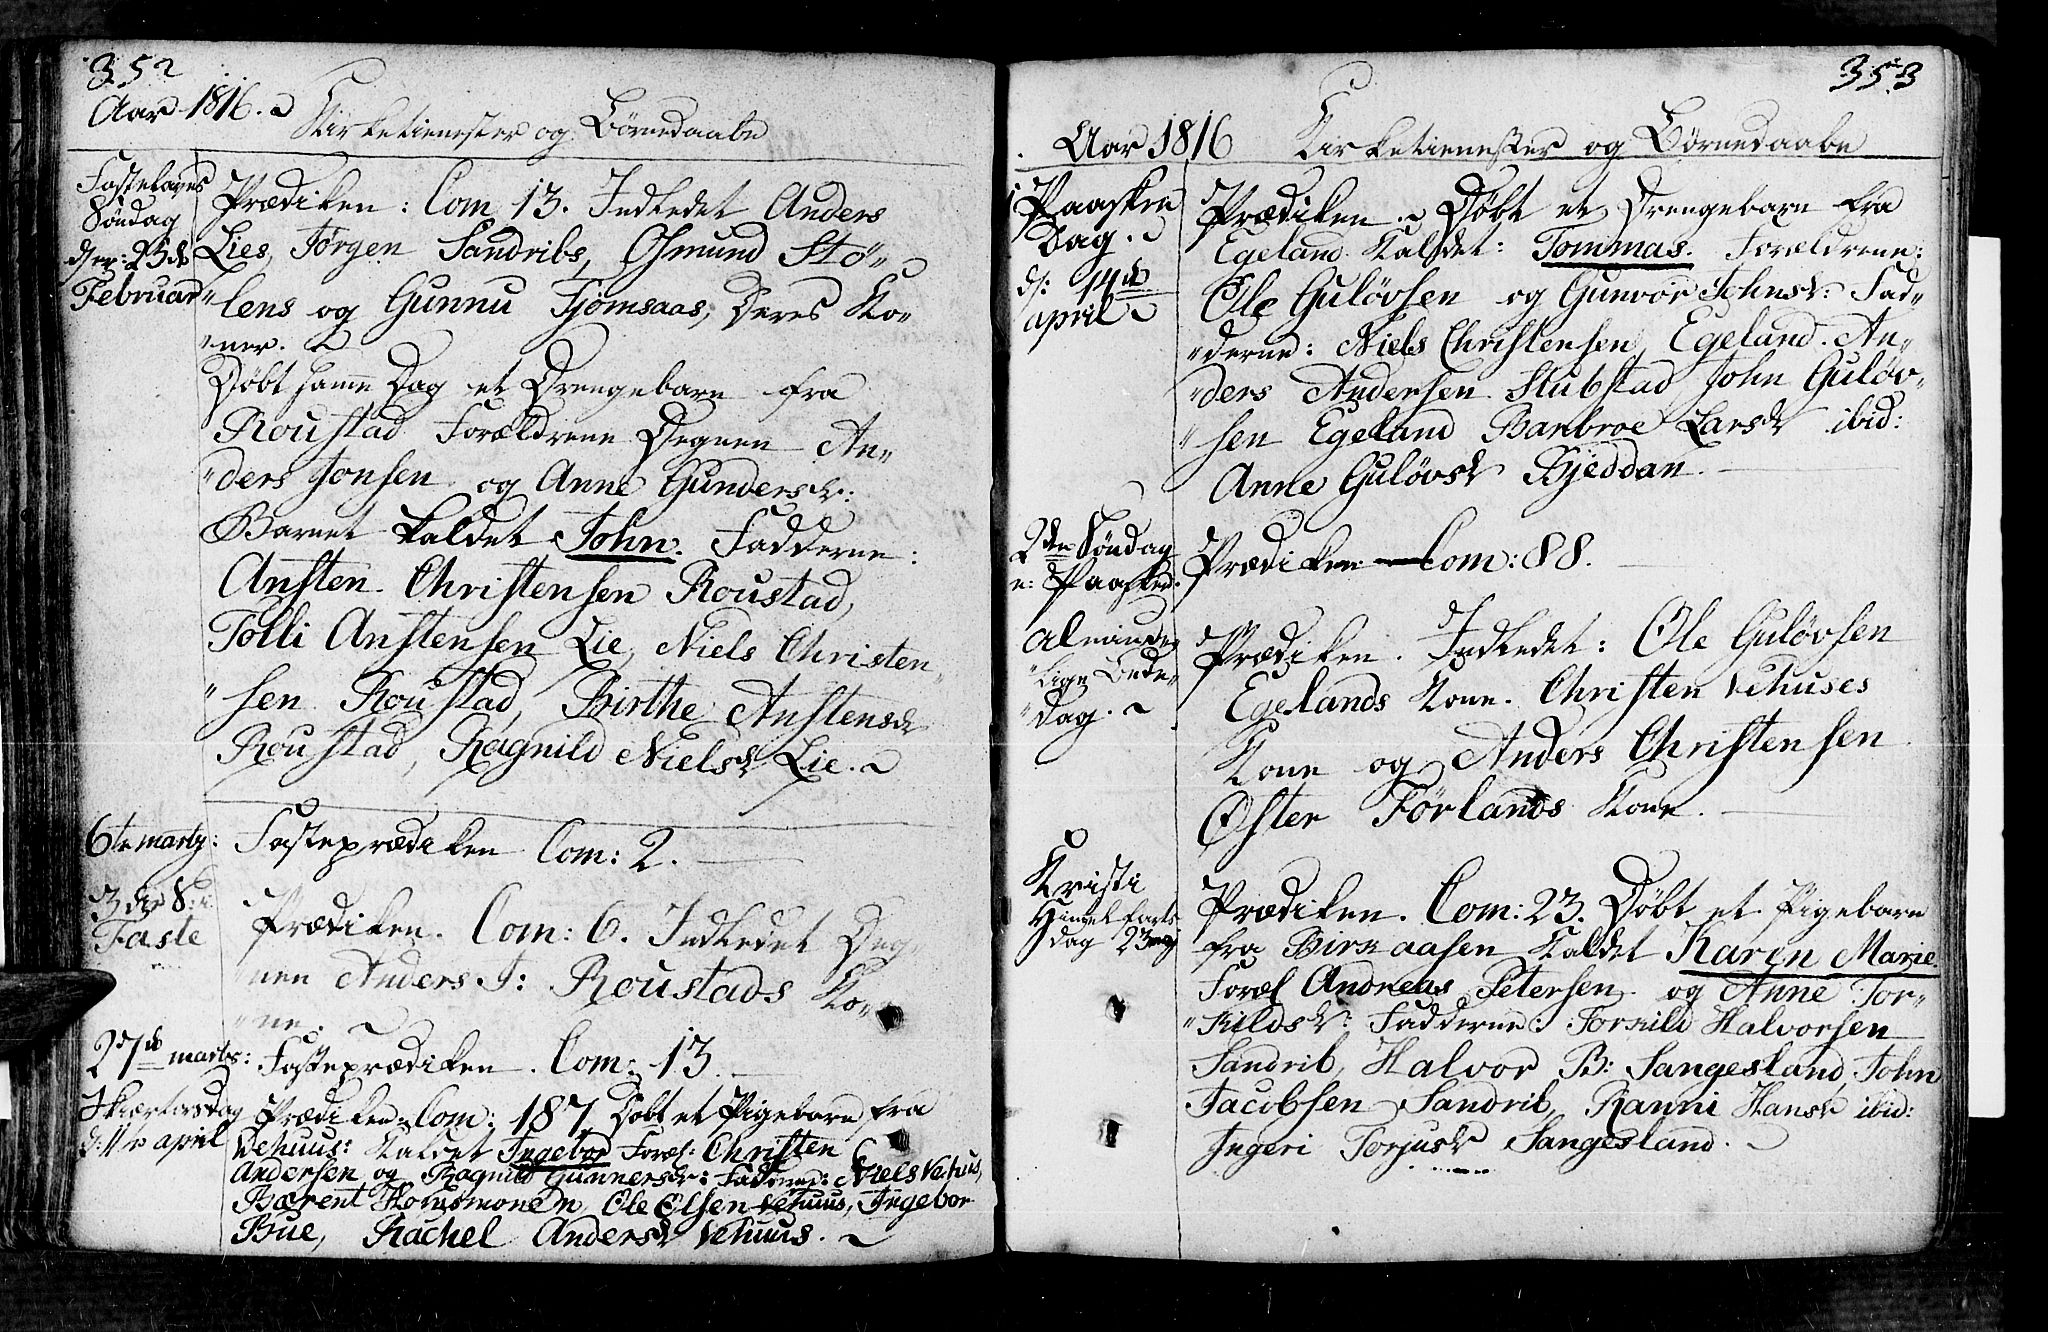 352
Aar 1816.
Kirketienester og Børnedaabe
Fastelavns
Söndag
den: 25de
Februar
Prædiken: Com 13. Indledet Anders
Lies, Jörgen Sandribs, Osmund Stö„
lens og Gunnu Tjomsaas, Deres Ko„
„ner.
Döbt samme Dag et Drengebarn fra
Roustad Forældrene Degnen An„
„ders Jonsen og Anne Gundersd:
Barnet kaldet John. Fadderne:
Ansten Christensen Roustad,
Tolli Anstensen Lie, Niels Christen„
„sen Roustad, Birthe Anstensd
Roustad, Ragnild Nielsd Lie.
6te marty:
Fasteprædiken Com: 2.
3die S: i
Faste
Prædiken. Com: 6. Indledet Deg
„nen Anders J: Roustads Ko„
„ne.
27de marts:
Fasteprædiken. Com: 13.
Skiertorsdag
d: 11te april
Prædiken Com: 187 Döbt et Pigebarn fra
Vehuus: Kaldet Ingebor Foræl: Christen
Andersen og Ragnild Gunnersd: Fadderne: Niels Vehuus,
Bærent Homsmonen Ole Olsen Vehuus, Ingebor
Bue, Rachel Andersd Vehuus.
353
Aar 1816 Kirketienester og Börnedaabe
1 Paaske
Dag.
d: 14de
april
Prædiken. Döbt et Drengebarn fra
Egeland Kaldet: Tommas. Forældrene:
Ole Gulövsen og Gunvor Johnsd: Fad„
„derne: Niels Christensen Egeland. An„
„ders Andersen Stubstad John Gulöv„
„sen Egeland Barbroe Larsd ibid:
Anne Gulövsd Kjeddan.
2den Söndag
e: Paaske.
Prædiken Com: 88.
Alminde„
„lige Bede„
„dag.
Prædiken. Indledet: Ole Gulövsen
Egelands Kone. Christen Vehuses
Kone og Anders Christensen
Öster Förlands Kone.
Kristi
Himelfarts
dag 23 maj
Prædiken. Com: 23. Döbt et Pigebarn
fra Birkaasen Kaldet Karen Marie.
Foræl Andreas Petersen og Anne Tor„
„kildsd: Fadderne: Torkild Halvorsen
Sandrib, Halvor B: Sangesland, John
Jacobsen Sandrib, Ranni Hansd ibid:
Ingeri Torjusd Sangesland.